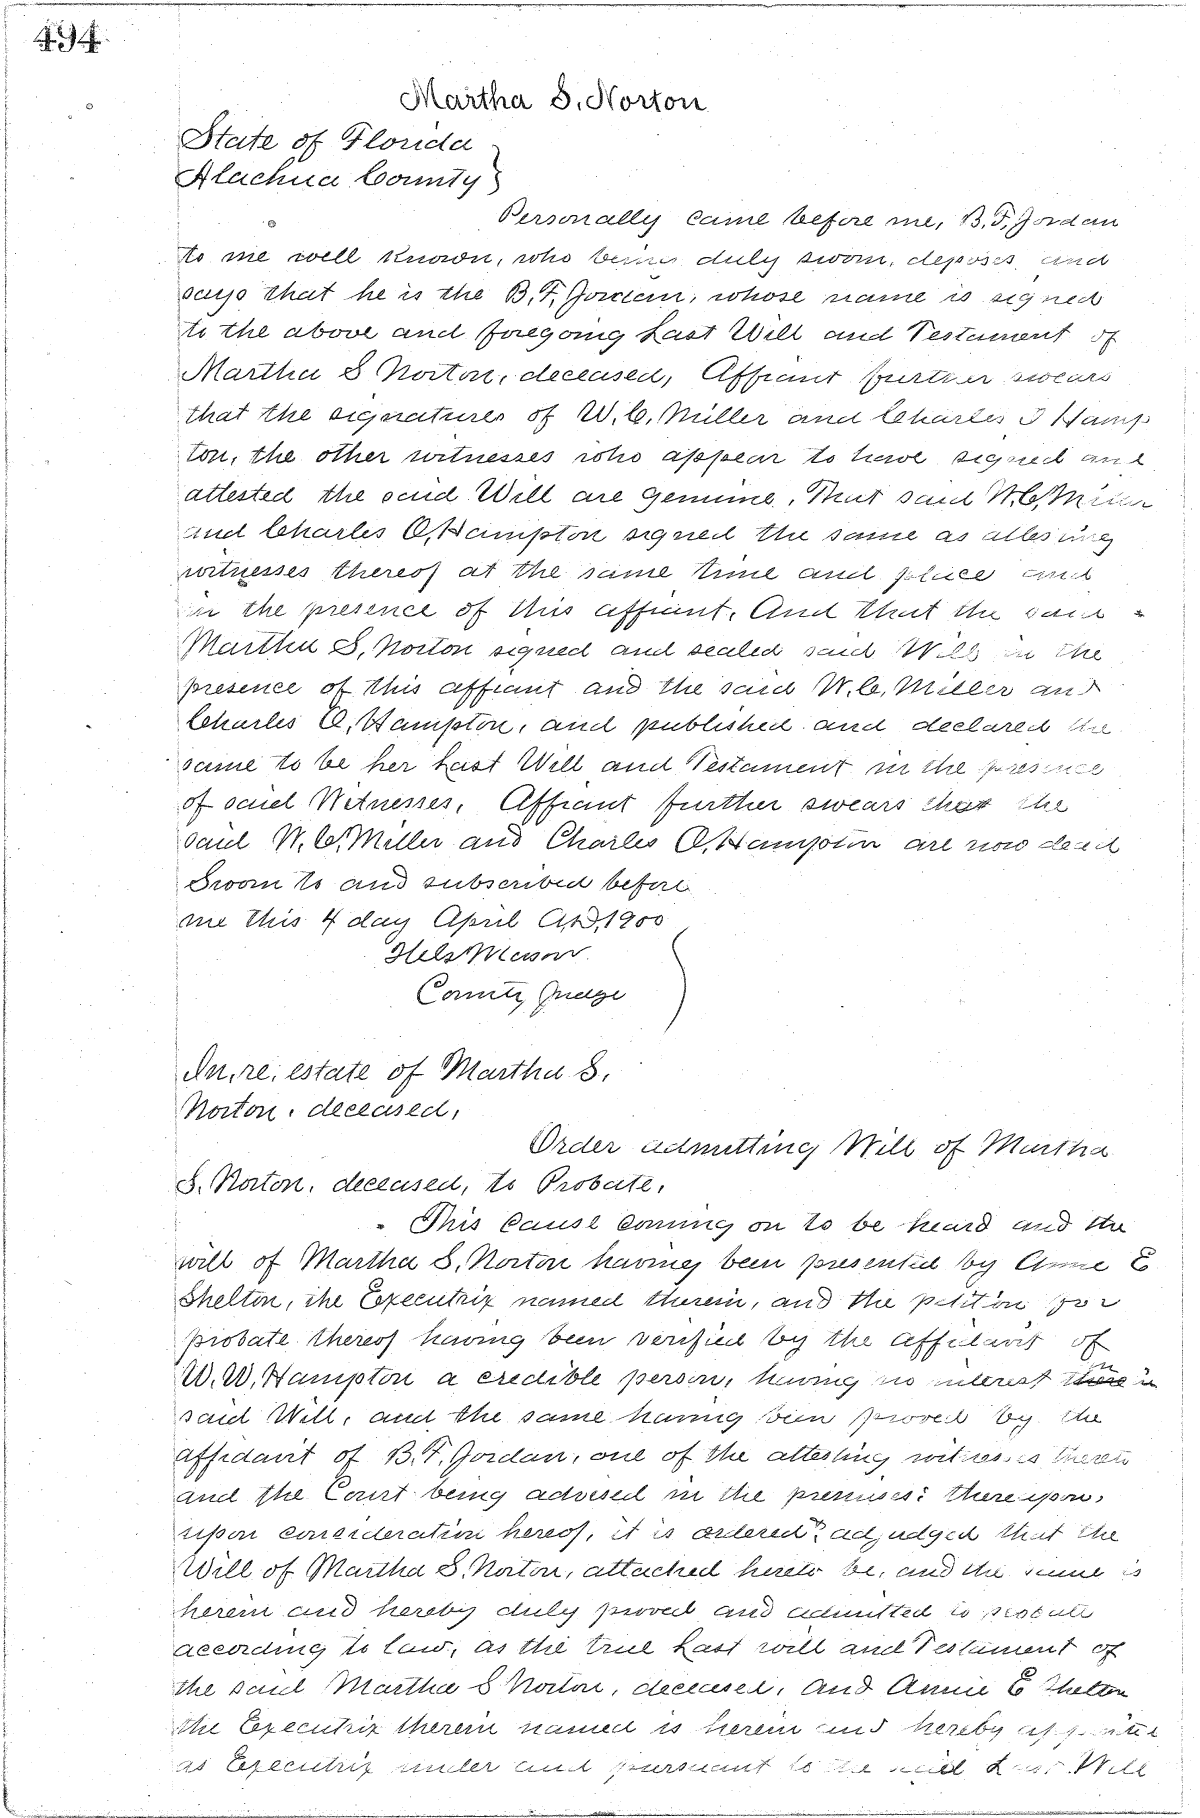 494
Martha S. Norton
State of Florida
Alachua County }
Personally came before me, B. F. Jordan
to me well known, who being duly sworn, deposes and
says that he is the B. F. Jordan, whose name is signed
to the above and foregoing Last Will and Testament of
Martha S Norton, deceased, Affiant further swears
that the signatures of W. C. Miller and Charles O Hamp
ton, the other witnesses who appear to have signed and
attested the said Will are genuine, That said W. C. Miller
and Charles O. Hampton signed the same as attesting
witnesses thereof at the same time and place and
in the presence of this affiant. And that the said
Martha S. Norton signed and sealed said Will in the
presence of this affiant and the said W. C. Miller and
Charles O. Hampton, and published and declared the
same to be her Last Will and Testament in the presence
of said Witnesses. Affiant further swears that the
said W. C. Miller and Charles O. Hampton are now dead
Sworn to and subscribed before
me this 4 day April A.D. 1900
Mason
County Judge
In, re, estate of Martha S.
Norton, deceased,
Order admitting Will of Martha
S. Norton, deceased, to Probate,
This cause coming on to be heard and the
will of Martha S. Norton having been presented by Annie E
Shelton, the Executrix named therein, and the petition for
probate thereof having been verified by the affidavit of
W. W. Hampton a credible person, having no interest in
said Will, and the same having been proved by the
affidavit of B. F. Jordan, one of the attesting witnesses thereto
and the Court being advised in the premises: thereupon,
upon consideration hereof, it is ordered & adjudged that the
Will of Martha S. Norton, attached hereto be, and the same is
herein and hereby duly proved and admitted to probate
according to law, as the true Last will and Testament of
the said Martha S Norton, deceased, and Annie E Shelton
the Executrix therein named is herein and hereby appointed
as Executrix under and pursuant to the said Last Will